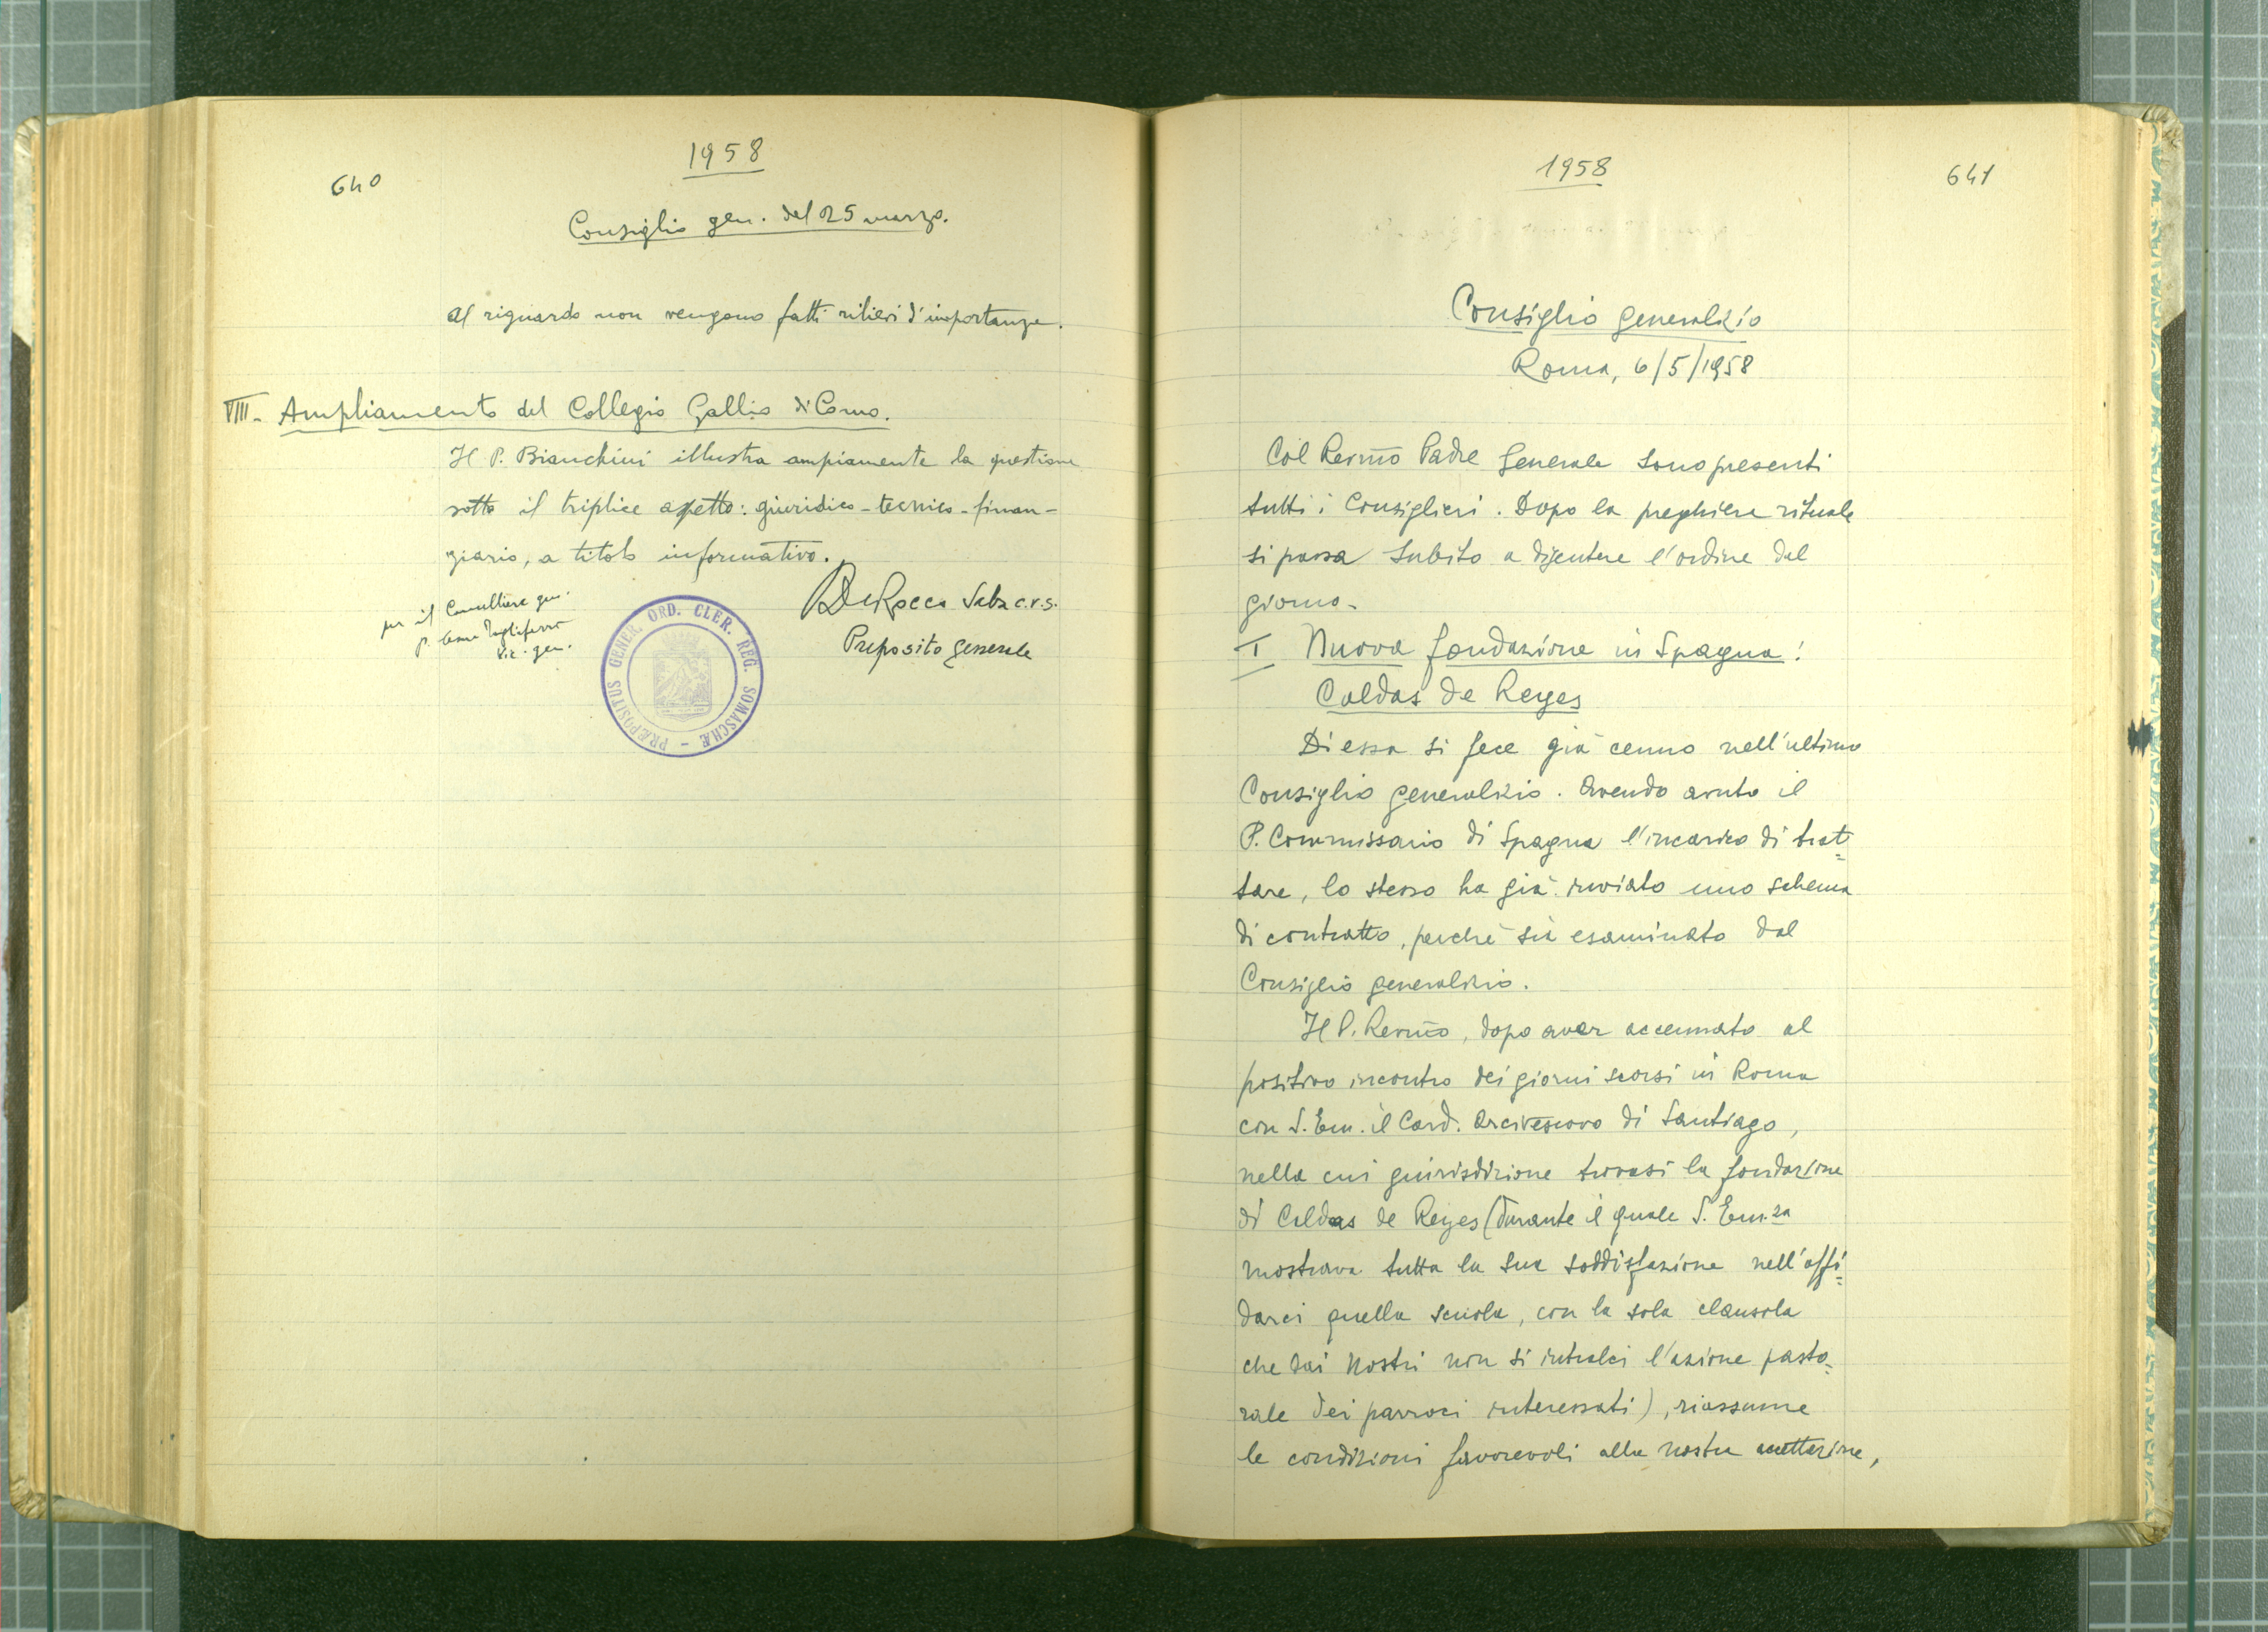 1958
640
Consiglio gen. del 25 marzo.
Al riguardo non vengono fatti rilievi d'importanza.
VIII - Ampliamento del Collegio Gallio di Como.
Il P. Bianchini illustra ampiamente la questione
sotto il triplice aspetto: giuridico - tecnico - finan-
ziario, a titolo informativo.
per il Cancelliere gen.
p. Cesare Tagliaferro
Vic. gen.
De Rocco Saba c.r.s.
Preposito Generale
PRÆPOSITUS GENER. ORD. CLER. REG. SOMASCHÆ -
1958
641
Consiglio generalizio
Roma, 6/5/1958
Col Rev.mo Padre Generale sono presenti
tutti i Consiglieri. Dopo la preghiera rituale
si passa subito a discutere l'ordine del
giorno -
I Nuova fondazione in Spagna:
Caldas de Reyes
Di essa si fece già cenno nell'ultimo
Consiglio generalizio. Avendo avuto il
P. Commissario di Spagna l'incarico di trat=
tare, lo stesso ha già inviato uno schema
di contratto, perchè sia esaminato dal
Consiglio generalizio.
Il P. Rev.mo, dopo aver accennato al
positivo incontro dei giorni scorsi in Roma
con S. Em. il Card. Arcivescovo di Santiago,
nella cui giurisdizione trovasi la fondazione
di Caldas de Reyes (durante il quale S. Em.za
mostrava tutta la sua soddisfazione nell'affi=
darci quella scuola, con la sola clausola
che dai Nostri non si intralci l'azione pasto=
rale dei parroci interessati), riassume
le condizioni favorevoli alla nostra accettazione,